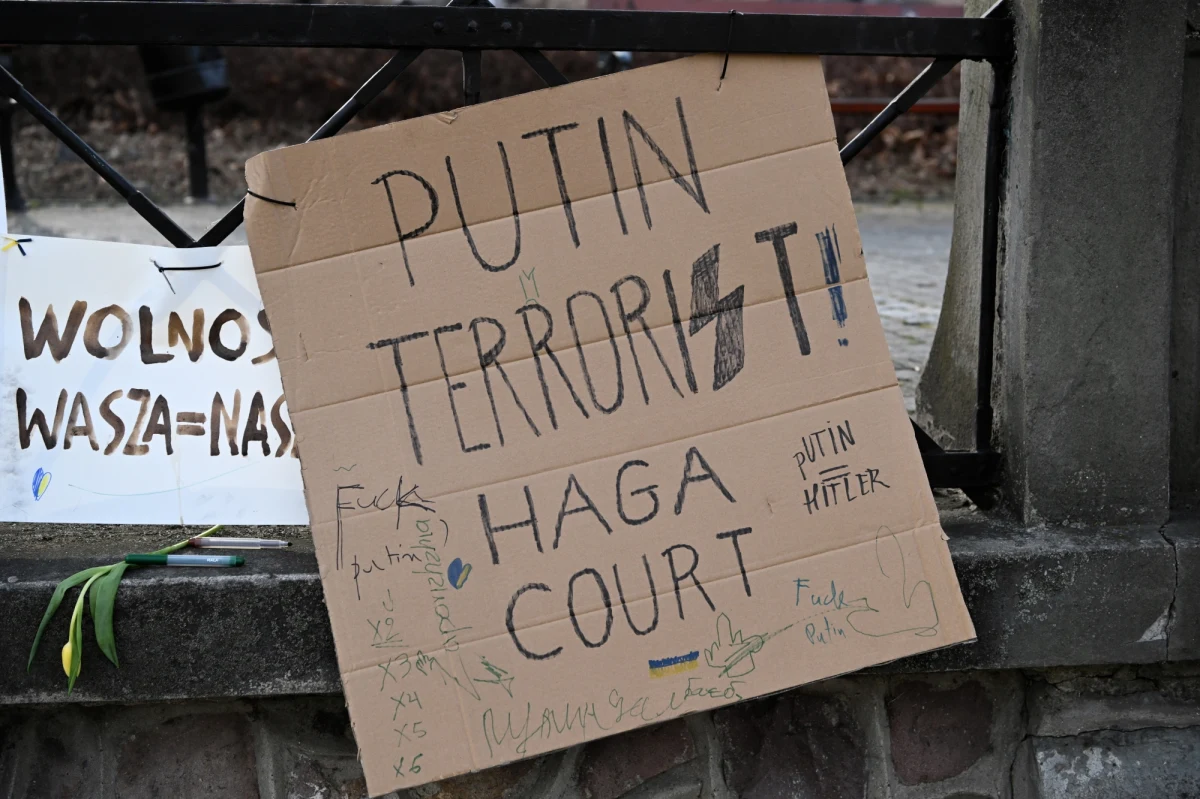 WOLNOŚ
WASZA=NAS
PUTIN
TERRORIST!
HAGA
COURT
PUTIN
=
HITLER
Fuck
putin
X3
X4
X5
X6
Fuck
Putin